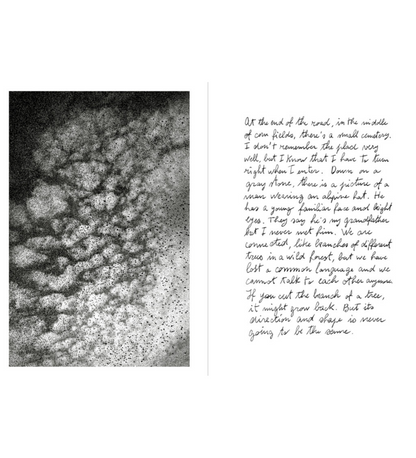 At the end of the road, in the middle
of corn fields, there's a small cemetery.
I don't remember the place very
well, but I know that I have to turn
right when I enter. Down on a
gray stone, there is a picture of a
man wearing an alpine hat. He
has a young familiar face and bright
eyes. They say he's my grandfather
but I never met him. We are
connected, like branches of different
trees in a wild forest, but we have
lost a common language and we
cannot talk to each other anymore.
If you cut the branch of a tree,
it might grow back. But its
direction and shape is never
going to be the same.